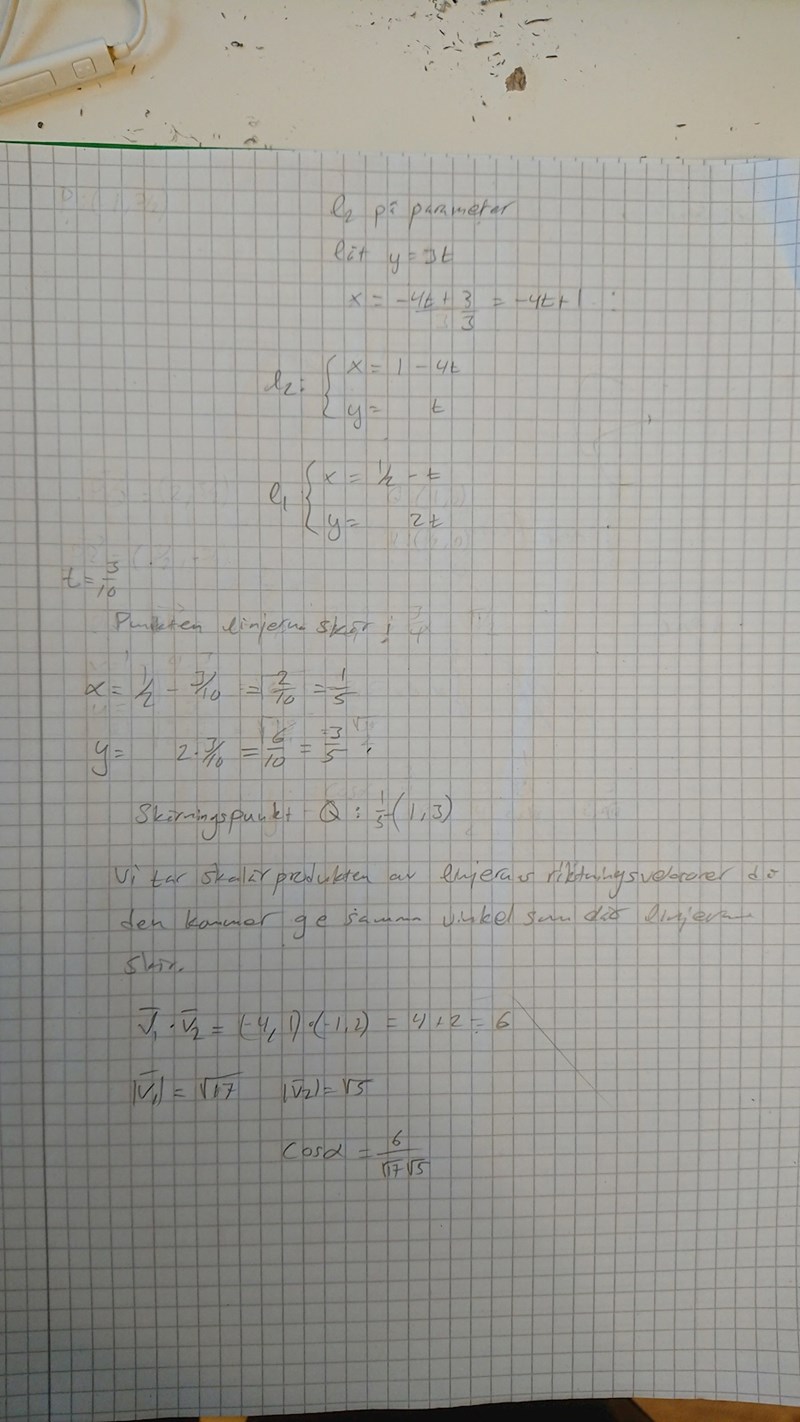 l₂ på parameter
låt y = 3t
x = -4t + 3/3 = -4t + 1
l₂: { x = 1 - 4t
y = t
l₁ { x = 1/2 - t
y = 2t
t = 3/10
Punkten linjerna skär i
x = 1/2 - 3/10 = 2/10 = 1/5
y = 2·3/10 = 6/10 = 3/5
Skärningspunkt Q : 1/5(1,3)
Vi tar skalärprodukten av linjernas riktningsvektorer då
den kommer ge samma vinkel som där linjerna
skär.
V̅₁ · V̅₂ = (-4, 1)·(-1, 2) = 4 + 2 = 6
|V̅₁| = √17 |V̅₂| = √5
cosα = 6/(√17√5)